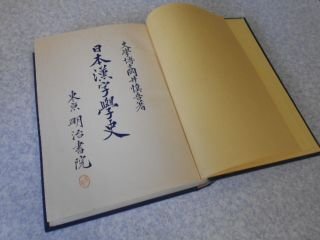 文學博士岡井慎吾著
日本漢字學史
東京 明治書院